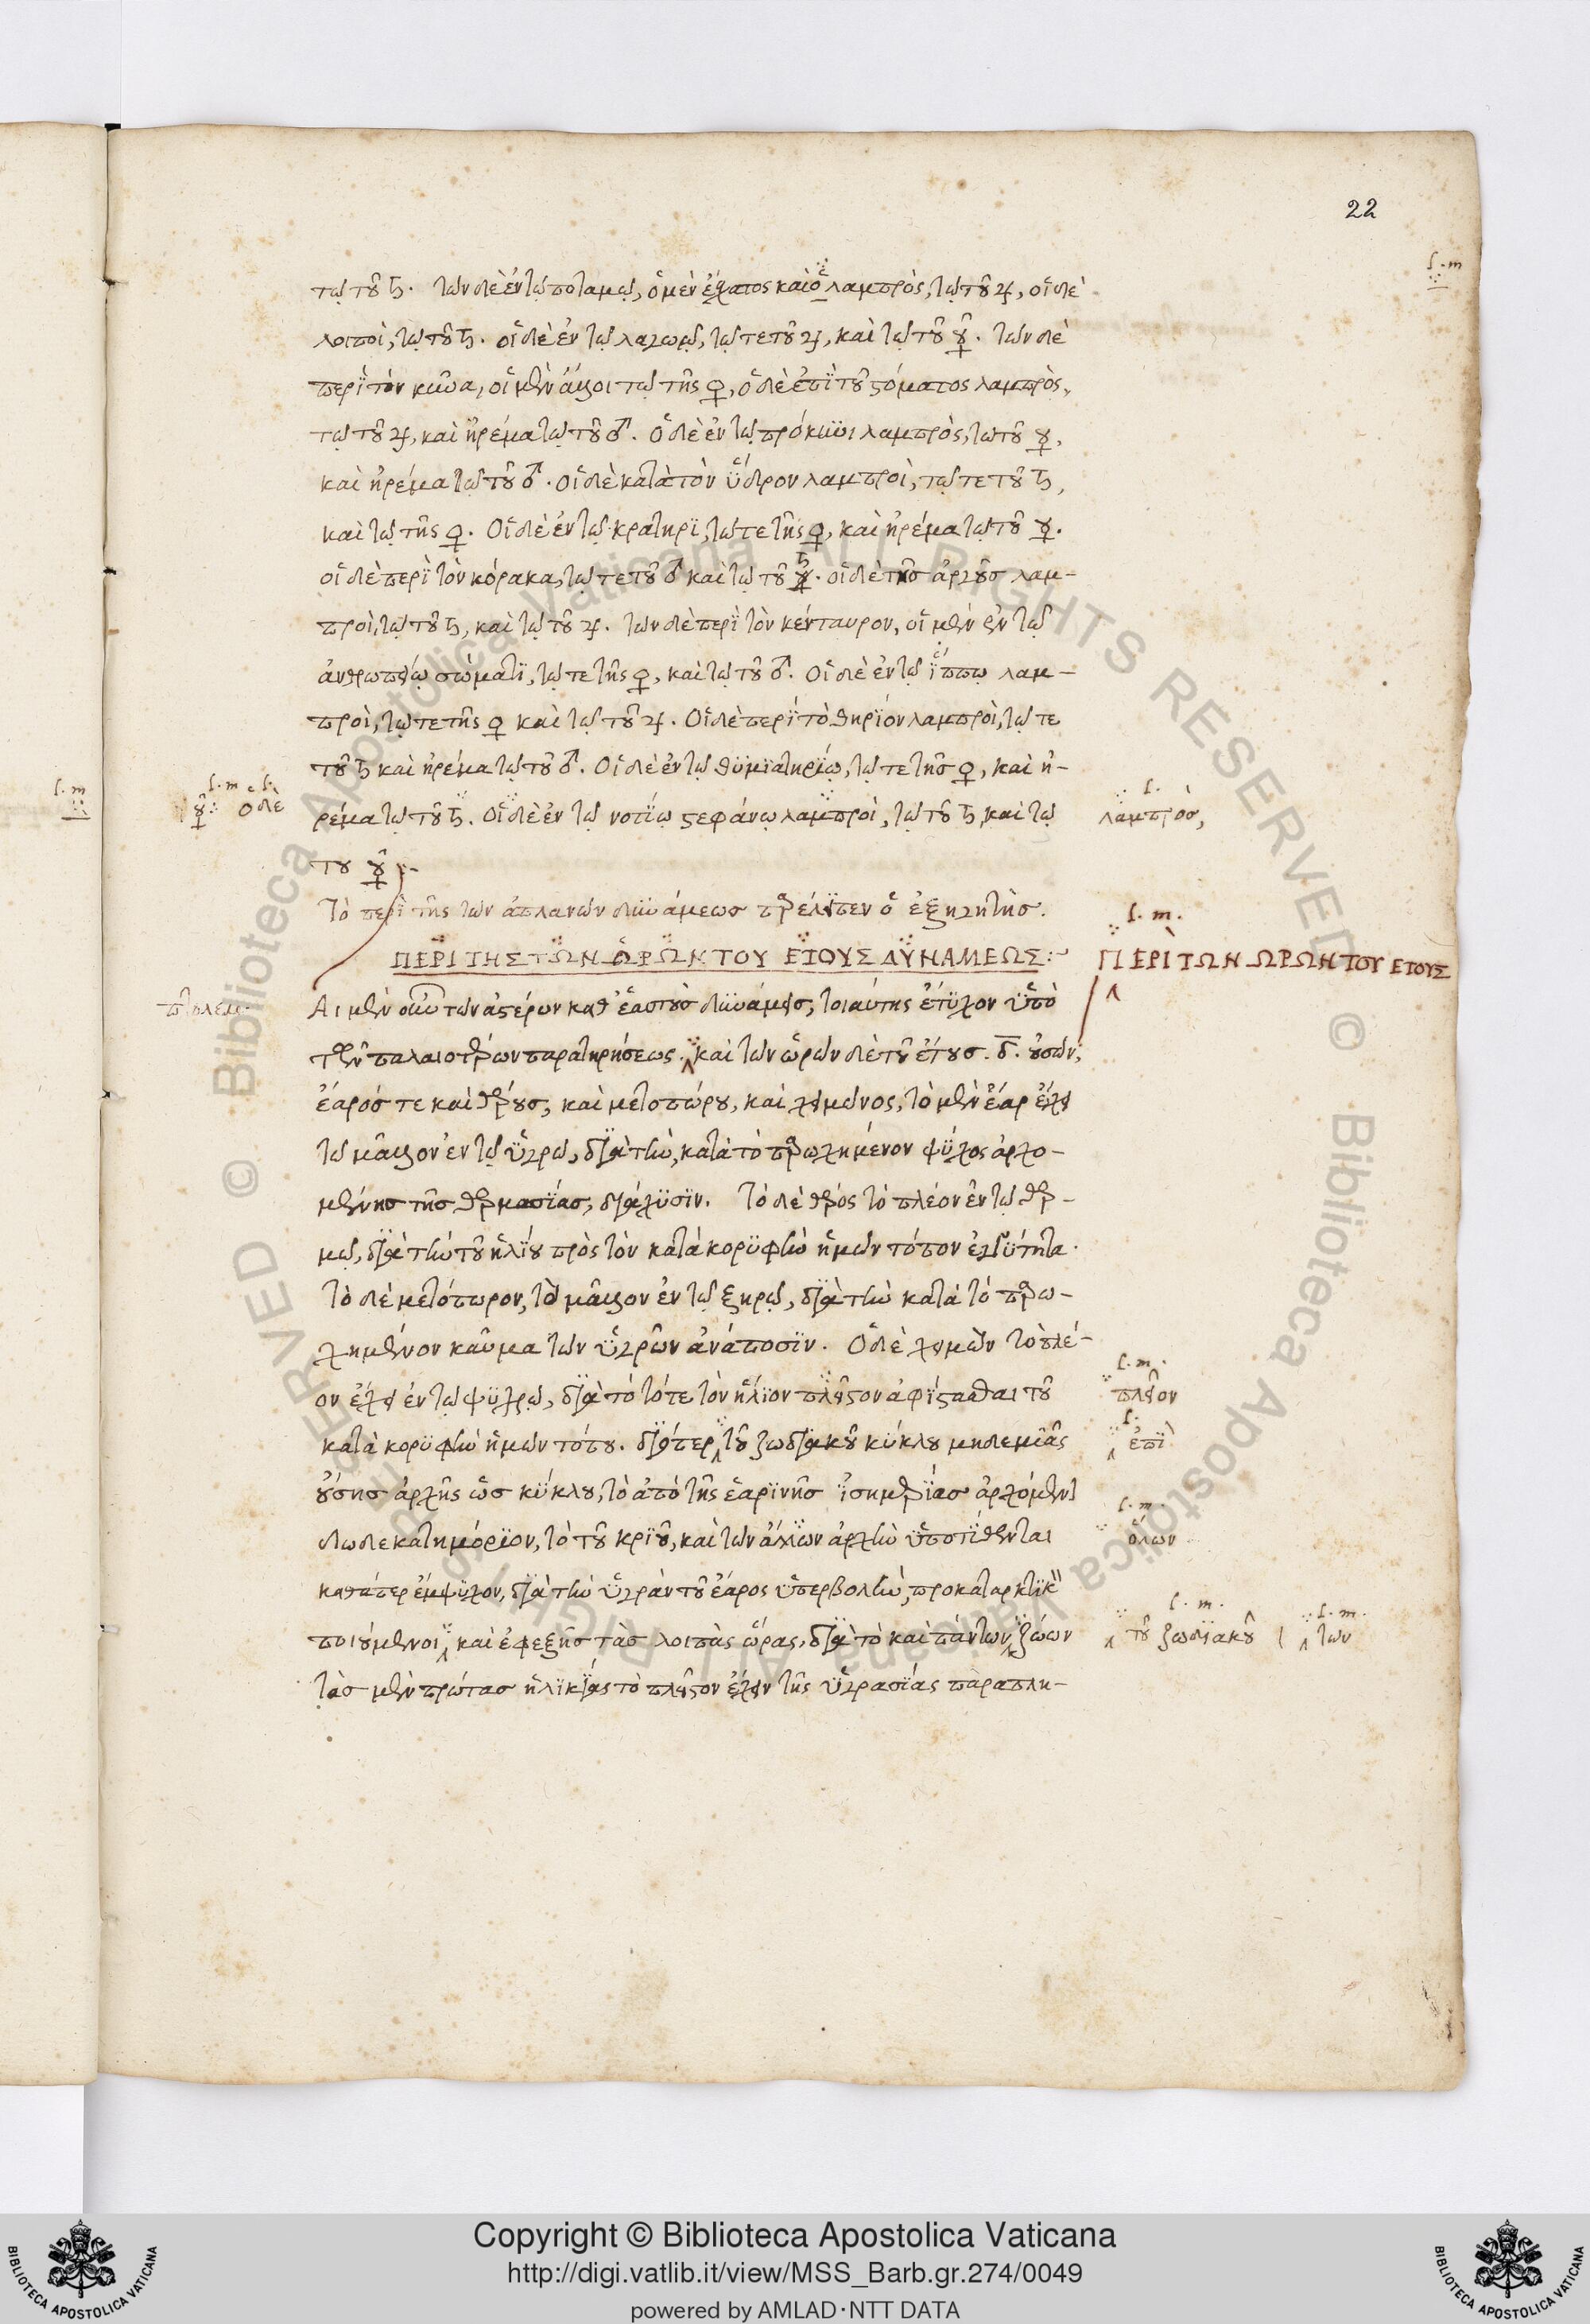 22
ſ. m
τῷ τοῦ ♄. τῶν δὲ ἐν τῷ ποταμῷ, ὁ μὲν ἔσχατος καὶ ὁ λαμπρὸς, τῷ τοῦ ♃, οἱ δὲ
λοιποὶ, τῷ τοῦ ♄. οἱ δὲ ἐν τῷ λαγωῷ, τῷ τε τοῦ ♃, καὶ τῷ τοῦ ☿. τῶν δὲ
περὶ τὸν κύνα, οἱ μὲν ἄλλοι τῷ τῆς ♀, ὁ δὲ ἐπὶ τοῦ στόματος λαμπρὸς,
τῷ τοῦ ♃, καὶ ἠρέμα τῷ τοῦ ♂. Ὁ δὲ ἐν τῷ πρόκυνι λαμπρὸς, τῷ τοῦ ☿,
καὶ ἠρέμα τῷ τοῦ ♂. οἱ δὲ κατὰ τὸν ὕδρον λαμπροὶ, τῷ τε τοῦ ♄,
καὶ τῷ τῆς ♀. Οἱ δὲ ἐν τῷ κρατηρϊ, τῷ τε τῆς ♀, καὶ ἠρέμα τῷ τοῦ ☿.
οἱ δὲ περὶ τὸν κόρακα, τῷ τε τοῦ ♂ καὶ τῷ τοῦ ♄. οἱ δὲ τῆς ἀργοῦς λαμ-
προὶ, τῷ τοῦ ♄, καὶ τῷ τοῦ ♃. τῶν δὲ περὶ τὸν κένταυρον, οἱ μὲν ἐν τῷ
ἀνθρωπείῳ σώματϊ, τῷ τε τῆς ♀, καὶ τῷ τοῦ ♂. Οἱ δὲ ἐν τῷ ἵππῳ λαμ-
προὶ, τῷ τε τῆς ♀ καὶ τῷ τοῦ ♃. Οἱ δὲ περὶ τὸ θηρΐον λαμπροὶ, τῷ τε
τοῦ ♄ καὶ ἠρέμα τῷ τοῦ ♂. Οἱ δὲ ἐν τῷ θϋμϊατηρΐῳ, τῷ τε τῆς ♀, καὶ ἠ-
ſ. m ☿ ſ. ὁ δὲ
ρέμα τῷ τοῦ ♄. Οἱ δὲ ἐν τῷ νοτΐῳ στεφάνῳ λαμπροὶ, τῷ τοῦ ♄, καὶ τῷ
ſ. λαμπρὸς,
του ☿
Τὸ περὶ τῆς τῶν ἀπλανῶν δυνάμεως παρέλιπεν ὁ ἐξηγητὴς.
ΠΕΡΙ ΤΗΣ ΤΩΝ ΩΡΩΝ ΤΟΥ ΕΤΟΥΣ ΔΥΝΑΜΕΩΣ:
ſ. m. ΠΕΡΙ ΤΩΝ ΩΡΩΝ ΤΟΥ ΕΤΟΥΣ
πτολεμ.
Αι μὲν οὖν τῶν ἀστέρων καθ' ἑαυτοὺς δυνάμεις, τοιαύτης ἔτυχον ὑπὸ
τῶν παλαιοτέρων παρατηρήσεως. καὶ τῶν ὡρῶν δὲ τοῦ ἔτους. δ. οὐσῶν,
ἔαρός τε καὶ θέρους, καὶ μετοπώρου, καὶ χειμῶνος, τὸ μὲν ἔαρ ἔχει
τῷ μᾶλλον ἐν τῷ ὑγρῷ, διὰ τὴν, κατὰ τὸ παρῳχημένον ψῦχος ἀρχο-
μένης τῆς θερμασίας, διάχϋσϊν. Τὸ δὲ θέρος τὸ πλέον ἐν τῷ θερ-
μῷ, διὰ τὴν τοῦ ἡλίου πρὸς τὸν κατὰ κορϋφὴν ἡμῶν τόπον ἐγγύτητα.
τὸ δὲ μετόπωρον, τὸ μᾶλλον ἐν τῷ ξηρῷ, διὰ τὴν κατὰ τὸ παρῳ-
χημένον καῦμα τῶν ὑγρῶν ἀνάποσϊν. Ὁ δὲ χειμὼν τὸ πλέ-
ον ἔχει ἐν τῷ ψϋχρῷ, διὰ τὸ τότε τὸν ἥλϊον πλεῖστον ἀφΐστασθαι τοῦ
ſ. m. πλεῖον
κατὰ κορϋφὴν ἡμῶν τόπου. διόπερ τοῦ ζωδιακοῦ κύκλου μηδεμιᾶς
ſ. ἐπὶ
οὔσης ἀρχῆς ὡς κύκλου, τὸ ἀπὸ τῆς ἑαρϊνῆς ἰσημερίας ἀρχόμενον
δωδεκατημόριον, τὸ τοῦ κρϊοῦ, καὶ τῶν ἄλλων ἀρχὴν ὑποτίθενται
ſ. m. ὅλων
καθάπερ ἐμψύχου, διὰ τὴν ὑγρὰν τοῦ ἔαρος ὑπερβολὴν, προκαταρκτϊκὴν
ποιούμενοι, καὶ ἐφεξῆς τὰς λοιπὰς ὥρας, διὰ τὸ καὶ πάντων ζώων
ſ. m. τοῦ ζωδϊακοῦ ſ. m. τῶν
τὰς μὲν πρώτας ἡλικίας τὸ πλεῖστον ἔχειν τῆς ὑγρασίας παραπλη-
Copyright © Biblioteca Apostolica Vaticana
http://digi.vatlib.it/view/MSS_Barb.gr.274/0049
powered by AMLAD·NTT DATA